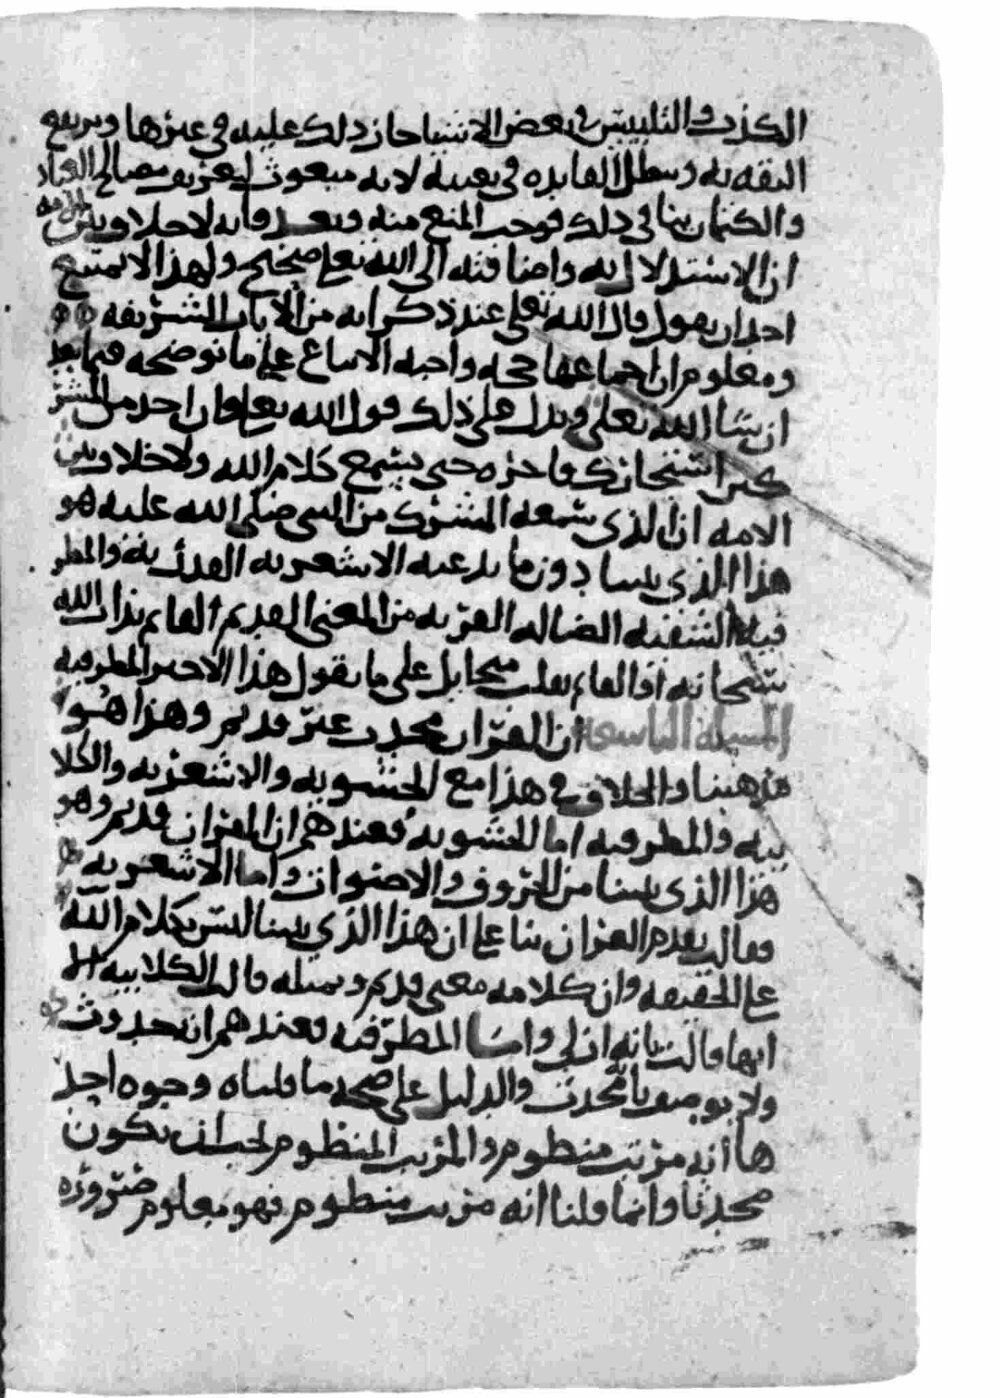 الكذب والتلبيس في بعض الاشيا جاز ذلك عليه في غيرها ويرتفع
الثقه به وتبطل الفايده في بعثته لانه مبعوث ليعرف مصالح العباد
والكتمان ينافي ذلك فوجب المنع منه وبعد فانه لا خلاف بين الامه
ان الاستدلال به واضافته الى الله تعلى صحيح ولهذا لا يمتنع
احد ان يقول قال الله تعلى عند ذكر ايه من الايات الشريفه
ومعلوم ان اجماعها حجه واجبه الاتباع على ما نوضحه فيما بعد
ان شا الله تعلى ويدل على ذلك قول الله تعلى وان احد من المشر
كين استجارك فاجره حتى يسمع كلام الله ولا خلاف بين
الامه ان الذي سمعه المشرك من النبي صلى الله عليه هو
هذا الذي بيننا دون ما يدعيه الاشعريه القدريه والمطر
فيه الشقيه الضاله الغويه من المعنى القديم القايم بذات الله
سبحانه او القايم بقلب ميخايل على ما يقول هذا الاخير المطرفيه
المسيله التاسعه ان القران محدث غير قديم وهذا هو
مذهبنا والخلاف في هذا مع الحشويه والاشعريه والكلا
بيه والمطرفيه اما الحشويه فعندهم ان القران قديم وهو
هذا الذي بيننا من الحروف والاصوات واما الاشعريه
فقالت بقدم القران بنا على ان هذا الذي بيننا ليس بكلام الله
على الحقيقه وان كلامه معنى قديم وبمثله قالت الكلابيه الا
انها قالت بانه ازلي واما المطرفيه فعندهم انه بحدوث
ولا يوصف بانه محدث والدليل على صحه ما قلناه وجوه احد
ها انه مرتب منظوم والمرتب المنظوم يجب ان يكون
محدثا وانما قلنا انه مرتب منظوم فهو معلوم ضروره